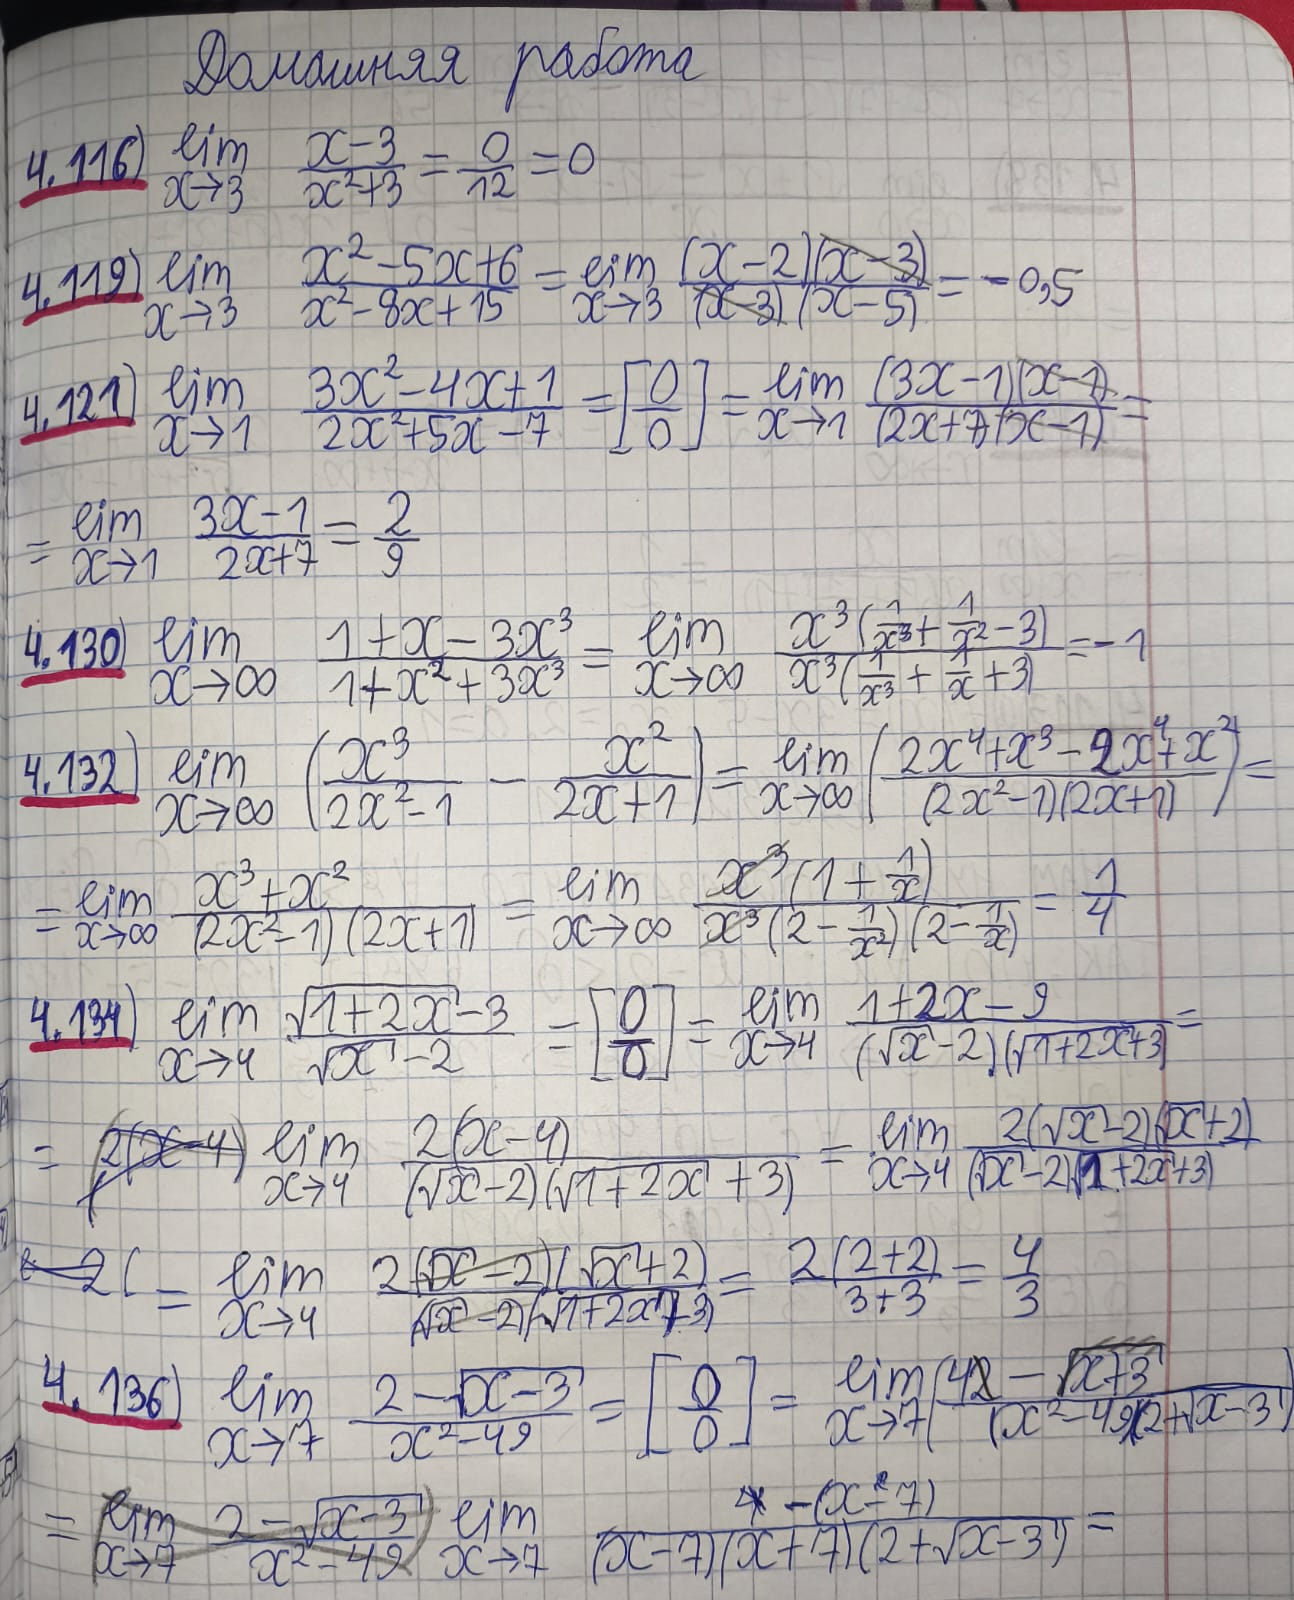 Домашняя работа
4.116) lim x→3 (x-3)/(x²+3) = 0/12 = 0
4.119) lim x→3 (x²-5x+6)/(x²-8x+15) = lim x→3 ((x-2)(x-3))/((x-3)(x-5)) = -0,5
4.121) lim x→1 (3x²-4x+1)/(2x²+5x-7) = [0/0] = lim x→1 ((3x-1)(x-1))/((2x+7)(x-1)) =
= lim x→1 (3x-1)/(2x+7) = 2/9
4.130) lim x→∞ (1+x-3x³)/(1+x²+3x³) = lim x→∞ (x³(1/x³+1/x²-3))/(x³(1/x³+1/x+3)) = -1
4.132) lim x→∞ (x³/(2x²-1) - x²/(2x+1)) = lim x→∞ ((2x⁴+x³-2x⁴+x²)/((2x²-1)(2x+1))) =
= lim x→∞ (x³+x²)/((2x²-1)(2x+1)) = lim x→∞ (x³(1+1/x))/(x³(2-1/x²)(2-1/x)) = 1/4
4.134) lim x→4 (√(1+2x)-3)/(√x-2) = [0/0] = lim x→4 (1+2x-9)/((√x-2)(√(1+2x)+3) =
= (2(x-4) lim x→4 2(x-4)/((√x-2)(√(1+2x)+3)) = lim x→4 (2(√x-2)(√x+2))/((√x-2)(√(1+2x)+3)
2( = lim x→4 (2(√x-2)(√x+2))/((√x-2)(√(1+2x)+3)) = 2(2+2)/(3+3) = 4/3
4.136) lim x→7 (2-√(x-3))/(x²-49) = [0/0] = lim x→7 (4 - x+3)/((x²-49)(2+√(x-3))
= (lim x→7 (2-√(x-3))/(x²-49)) lim x→7 (-(x-7))/((x-7)(x+7)(2+√(x-3))) =